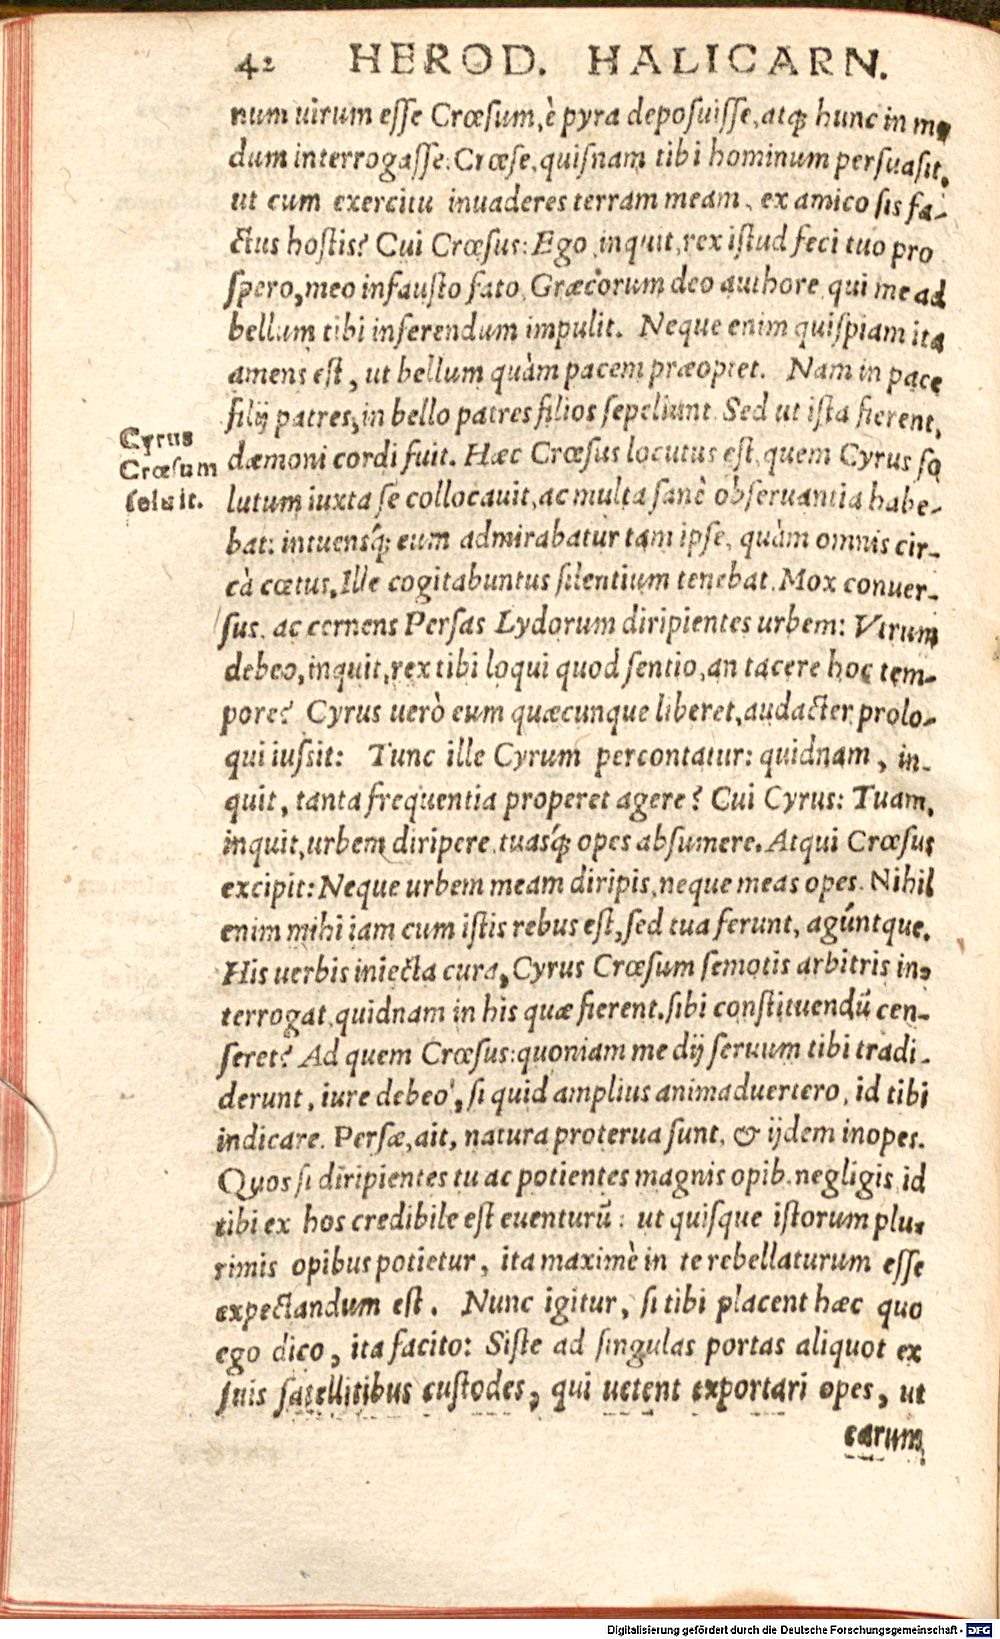 42 HEROD. HALICARN.
num uirum esse Crœsum, è pyra deposuisse, atq́; hunc in mo
dum interrogasse: Crœse, quisnam tibi hominum persuasit,
ut cum exercitu inuaderes terram meam, ex amico sis fa-
ctus hostis? Cui Crœsus: Ego, inquit, rex istud feci tuo pro
spero, meo infausto fato, Græcorum deo authore, qui me ad
bellum tibi inferendum impulit. Neque enim quispiam ita
amens est, ut bellum quàm pacem præoptet. Nam in pace
filij patres, in bello patres filios sepeliunt. Sed ut ista fierent,
dæmoni cordi fuit. Hæc Crœsus locutus est, quem Cyrus so
lutum iuxta se collocauit, ac multa sanè obseruantia habe-
bat: intuensq́; eum admirabatur tam ipse, quàm omnis cir-
cà cœtus. Ille cogitabuntus silentium tenebat. Mox conuer-
sus, ac cernens Persas Lydorum diripientes urbem: Vtrum
debeo, inquit, rex tibi loqui quod sentio, an tacere hoc tem-
pore? Cyrus uerò eum quæcunque liberet, audacter prolo-
qui iussit: Tunc ille Cyrum percontatur: quidnam, in-
quit, tanta frequentia properet agere? Cui Cyrus: Tuam,
inquit, urbem diripere, tuasq́; opes absumere. Atqui Crœsus
excipit: Neque urbem meam diripis, neque meas opes. Nihil
enim mihi iam cum istis rebus est, sed tua ferunt, agúntque.
His uerbis iniecta cura, Cyrus Crœsum semotis arbitris in-
terrogat, quidnam in his quæ fierent, sibi constituendū cen-
seret? Ad quem Crœsus: quoniam me dij seruum tibi tradi-
derunt, iure debeo, si quid amplius animaduertero, id tibi
indicare. Persæ, ait, natura proterua sunt, & ijdem inopes.
Quos si diripientes tu ac potientes magnis opib. negligis, id
tibi ex hos credibile est euenturū: ut quisque istorum plu-
rimis opibus potietur, ita maximè in te rebellaturum esse
expectandum est. Nunc igitur, si tibi placent hæc quo
ego dico, ita facito: Siste ad singulas portas aliquot ex
suis satellitibus custodes, qui uetent exportari opes, ut
earum
Cyrus
Crœsum
soluit.
Digitalisierung gefördert durch die Deutsche Forschungsgemeinschaft - DFG